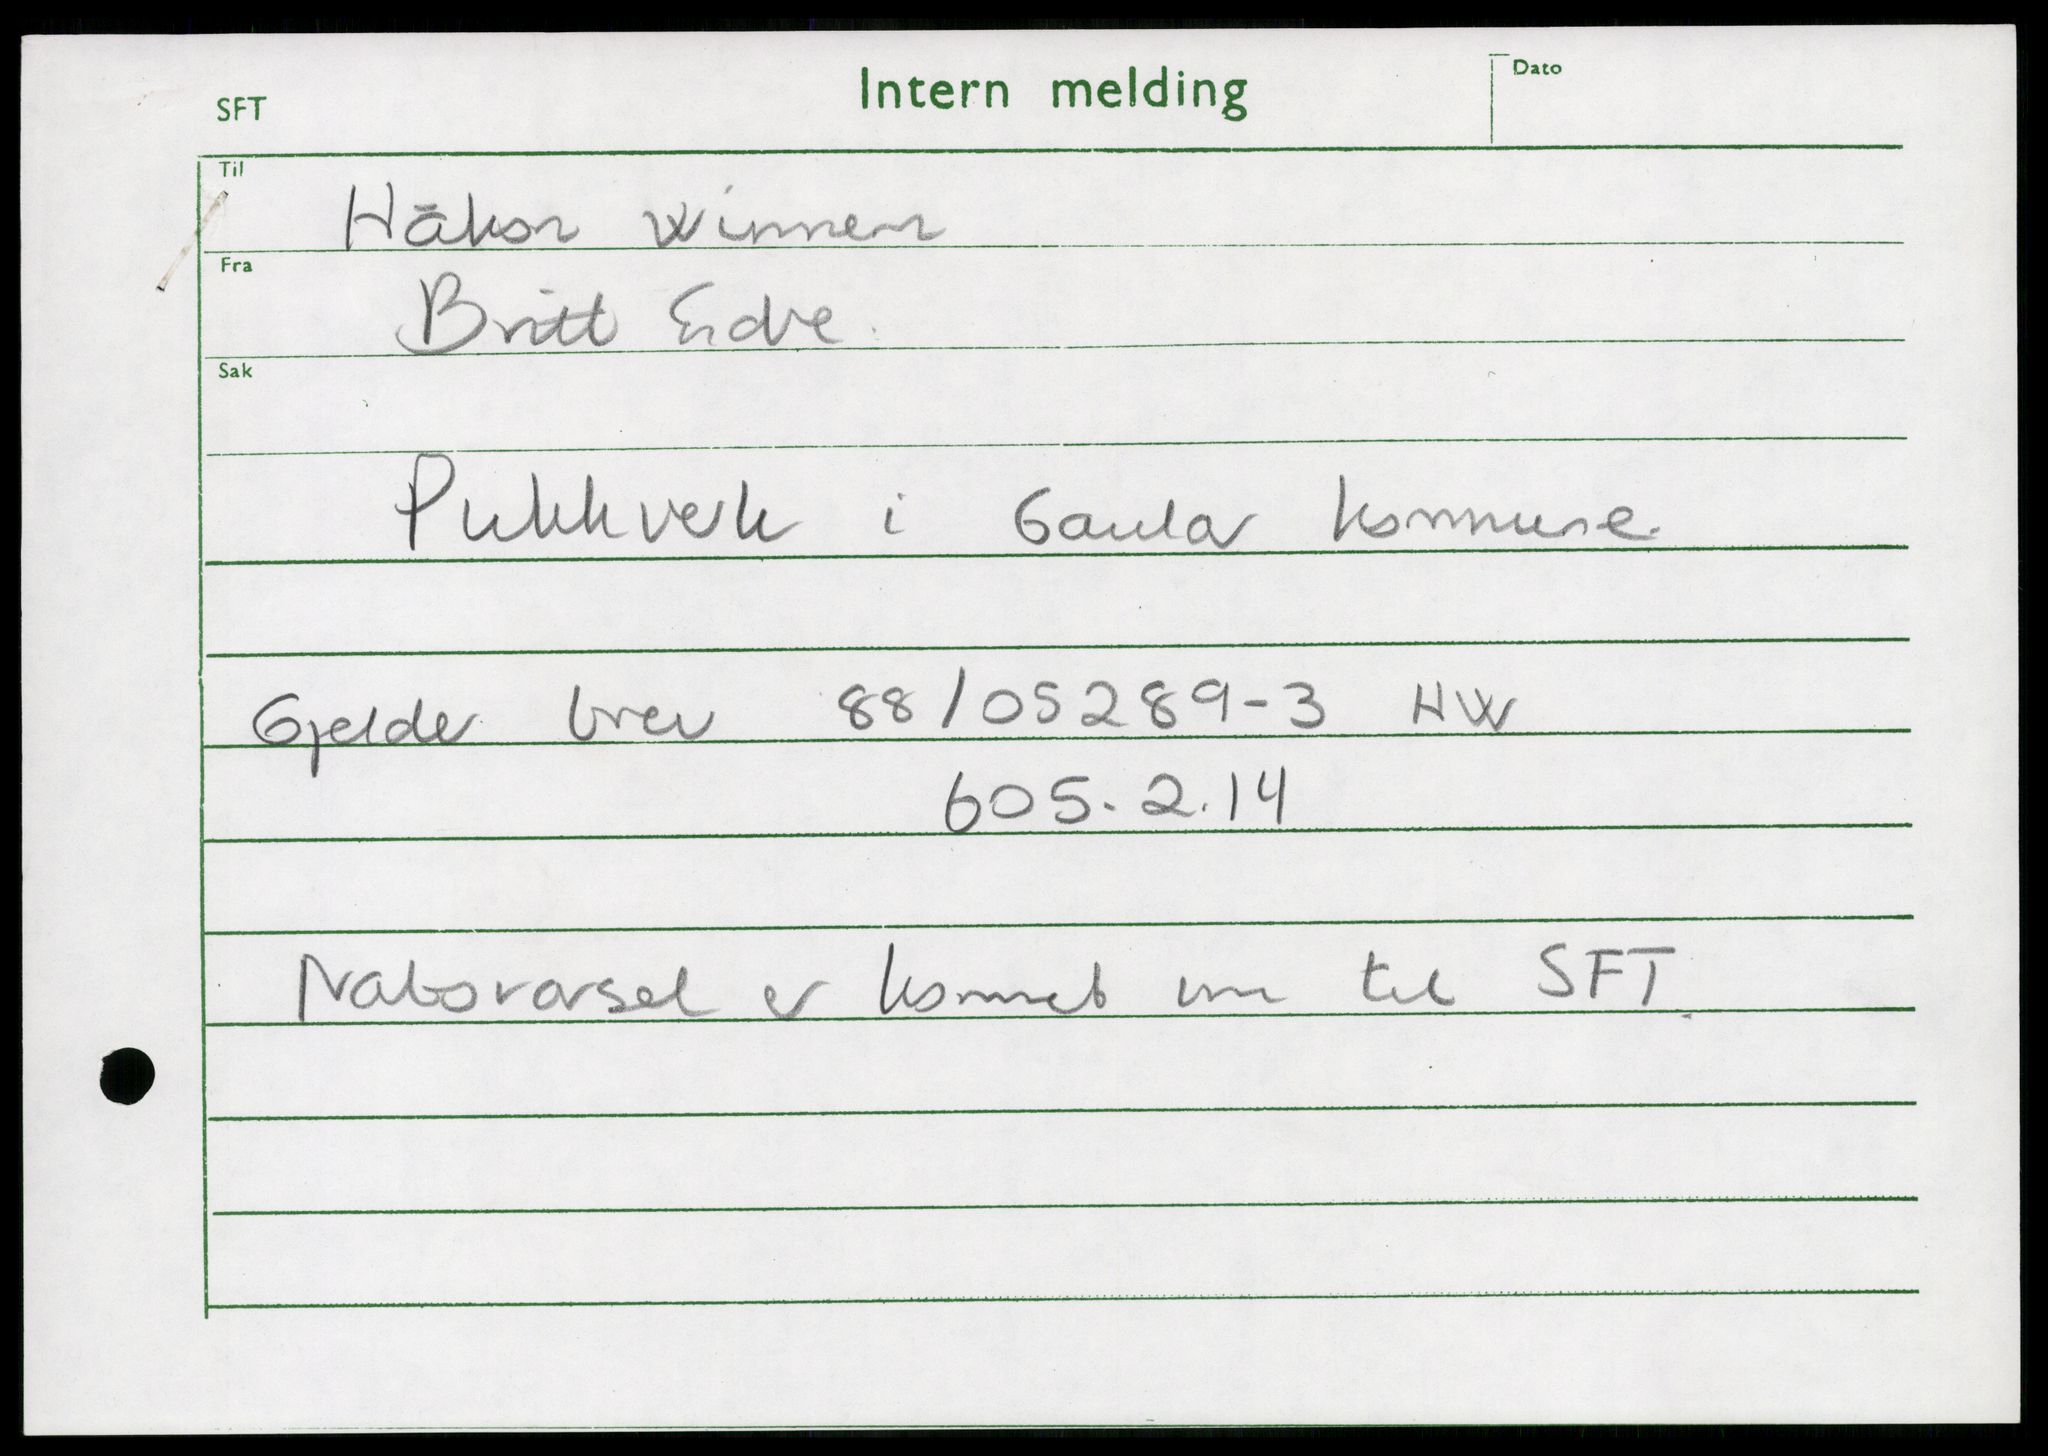 SFT
Intern melding
Dato
Til
Håkon Winnem
Fra
Britt Endre.
Sak
Pukkverk i Gaular kommune.
Gjelder brev 88/05289-3 HW
605.2.14
Nabovarsel er kommet inn til SFT.